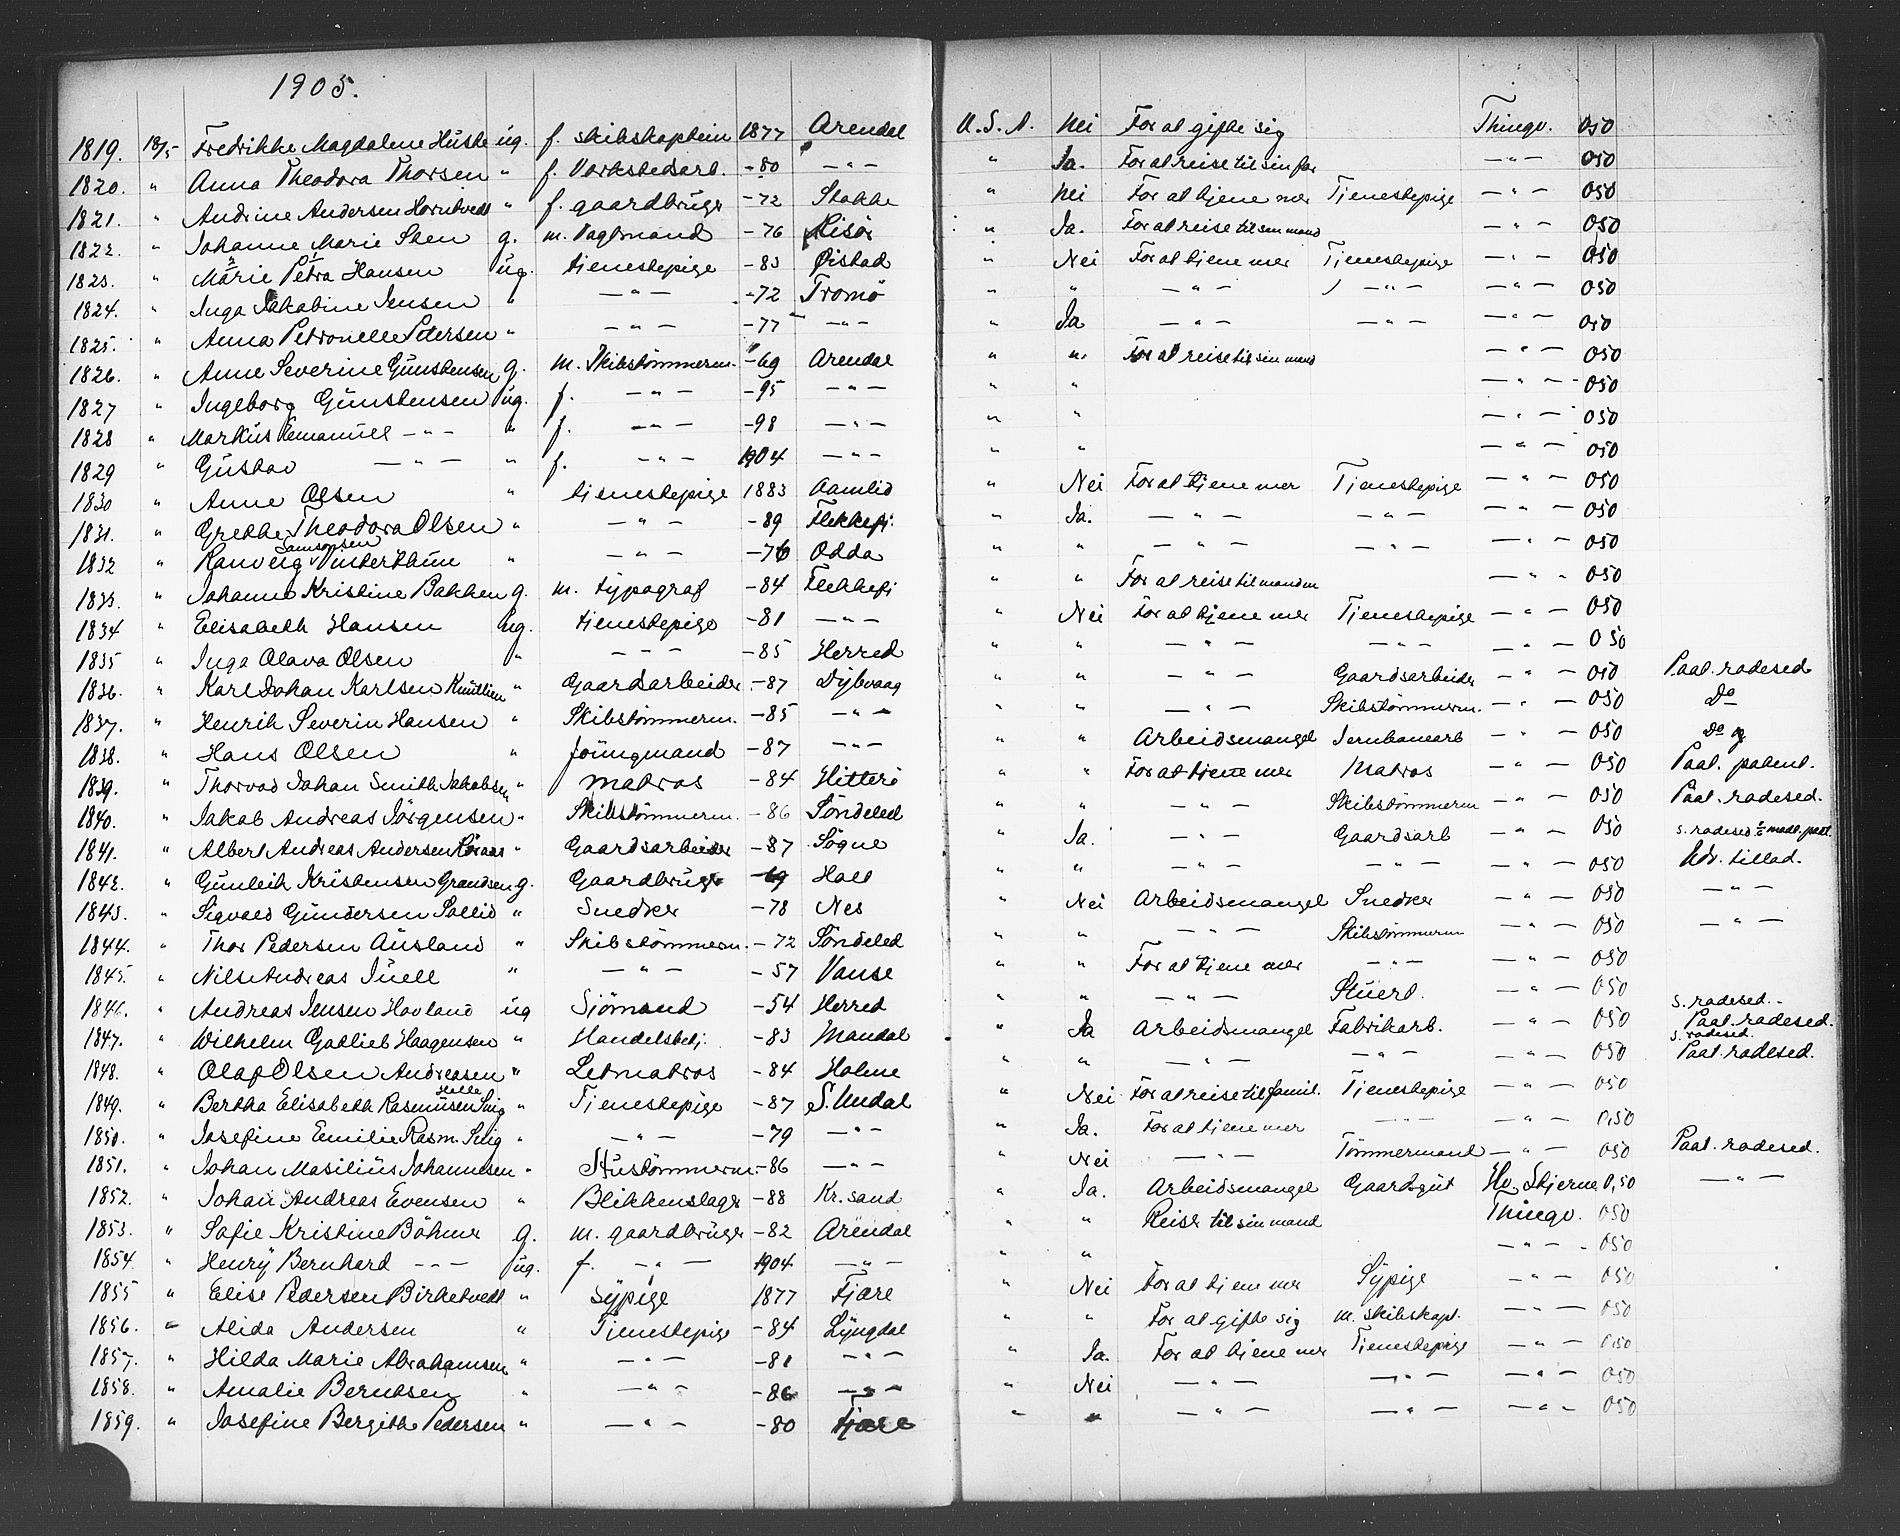 1905.
1819. 18/5 Fredrikke Magdalene Huste ug. f. skibskaptein 1877 Arendal U.S.A. Nei For at gifte sig Thingv. 050
1820. " Anna Theodora Thorsen " f. Verkstedsarb. -80 -"- " Ja. For at reise til sin far -"- 050
1821. " Andrine Andersen Hornkvedt " f. gaardbruger -72 Stokke " Nei For at tjene mer Tjenestepige -"- 050
1822. " Johanne Marie Sten g. m. Vagtmand -76 Risør " Ja. For at reise til sin mand -"- 050
1823. " Marie Petra Hansen ug. tjenestepige -83 Øistad " Nei For at tjene mer Tjenestepige -"- 050
1824. " Inga Jakobine Jensen " -"- -72 Tromø " " -"- -"- -"- 050
1825. " Anna Petronelle Petersen " -"- -77 -"- " Ja -"- -"- -"- 050
1826. " Anne Severine Gunstensen g. m. Skibstømmerm. -69 Arendal " " For at reise til sin mand -"- 050
1827 " Ingeborg Gunstensen ug. f. -"- -95 -"- " " -"- 050
1828 " Markus Emanuel -"- " f. -"- -98 -"- " " -"- 050
1829 " Gustav -"- " f. -"- 1904 -"- " " -"- 050
1830 " Anne Olsen " tjenestepige 1883 Aamlid " Nei For at tjene mer Tjenestepige -"- 050
1831. " Grethe Theodora Olsen " -"- -89 Flekkefj. " Ja. -"- -"- -"- 050
1832 " Ranveig Samsonsen Vinterthun " -"- -76 Odda " " -"- -"- -"- 050
1833. " Johanne Kristine Bakken g. m. typograf -84 Flekkefj " " For at reise til manden -"- 050
1834 " Elisabeth Hansen ug. tjenestepige -81 -"- " Nei For at tjene mer Tjenestepige -"- 050
1835 " Inga Olava Olsen " -"- -85 Herred " " -"- -"- -"- 050
1836. " Karl Johan Karlsen Knutlien " Gaardsarbeider -87 Dybvaag " " -"- Gaardsarbeider -"- 050 Paal. radesed
1837. " Henrik Severin Hansen " Skibstømmerm. -85 -"- " " -"- Skibstømmerm. -"- 050 Do
1838. " Hans Olsen " Joungmand -87 -"- " " Arbeidsmangel Jernbanearb -"- 050 Do og
1839. " Thorvad Johan Smith Jakobsen " Matros -84 Hitterø " " For at tjene mer Matros -"- 050 Paal. patent.
1840. " Jakob Andreas Jörgensen " Skibstømmerm. -86 Söndeled " " -"- Skibstømmerm -"- 050 Paal. radesed.
1841. " Albert Andreas Andersen " Gaardsarbeider -87 Søgne " Ja. -"- Gaardsarb -"- 050 s. radesed
1842. " Gunleik Kristensen Grandsen g. Gaardbruger -69 Holt " " -"- -"- -"- 050 Udv. tillad.
1843. " Sigvald Gundersen Sollid " Snedker -78 Nes " Nei Arbeidsmangel Snedker -"- 050 -"-
1844. " Thor Pedersen Ausland " Skibstømmerm. -72 Söndeled " " -"- Skibstømmerm -"- 050 -"-
1845. " Nils Andreas Juell " -"- -57 Vanse " " For at tjene mer -"- -"- 050
1846. " Andreas Jensen Havland ug Sjömand -54 Herred " " -"- Stuert. -"- 050
1847. " Wilhelm Gotlieb Haagensen " Handelsbetj. -83 Mandal " Ja Arbeidsmangel Fabrikarb. -"- 050 s. radesed. Paal. radesed.
1848. " Olaf Olsen Andreasen " Letmatros -84 Holme " " -"- -"- -"- 050 s. radesed. Paal. radesed.
1849. " Bertha Elisabeth Rasmusen Holle Svig " Tjenestepige -87 S. Undal " Nei For at reise til famil. Tjenestepige -"- 050
1850. " Josefine Emilie Rasm. Svig " -"- -79 -"- " Ja. For at tjene mer -"- -"- 0,50
1851. " Johan Masilius Johannesen " Hustømmerm. -86 -"- " Nei -"- Tømmermand -"- 050 Paal. radesed.
1852. " Johan Andreas Evensen " Blikkenslager -88 Kr. sand " Ja. Arbeidsmangel Gaardsgut Hv. Skjerne 0,50 -"-
1853. " Sofie Kristine Böhmer g. m. gaardbruger -82 Arendal " " Reise til sin mand Thingv. 050
1854. " Henry Bernhard -"- ug. f. -"- 1904 -"- " " -"- 050
1855 " Elise Pedersen Birketvedt " Sypige 1877 Fjære " Nei For at tjene mer Sypige -"- 050
1856. " Alida Andersen " Tjenestepige -84 Lyngdal " " For at gifte sig m. skibskapt. -"- 050
1857. " Hilda Marie Abrahamsen " -"- -81 -"- " Ja. For at tjene mer Tjenestepige -"- 050
1858. " Amalie Berntsen " -"- -86 -"- " Nei -"- -"- -"- 050
1859. " Josefine Bergithe Pedersen " -"- -80 Fjære " " -"- -"- -"- 050